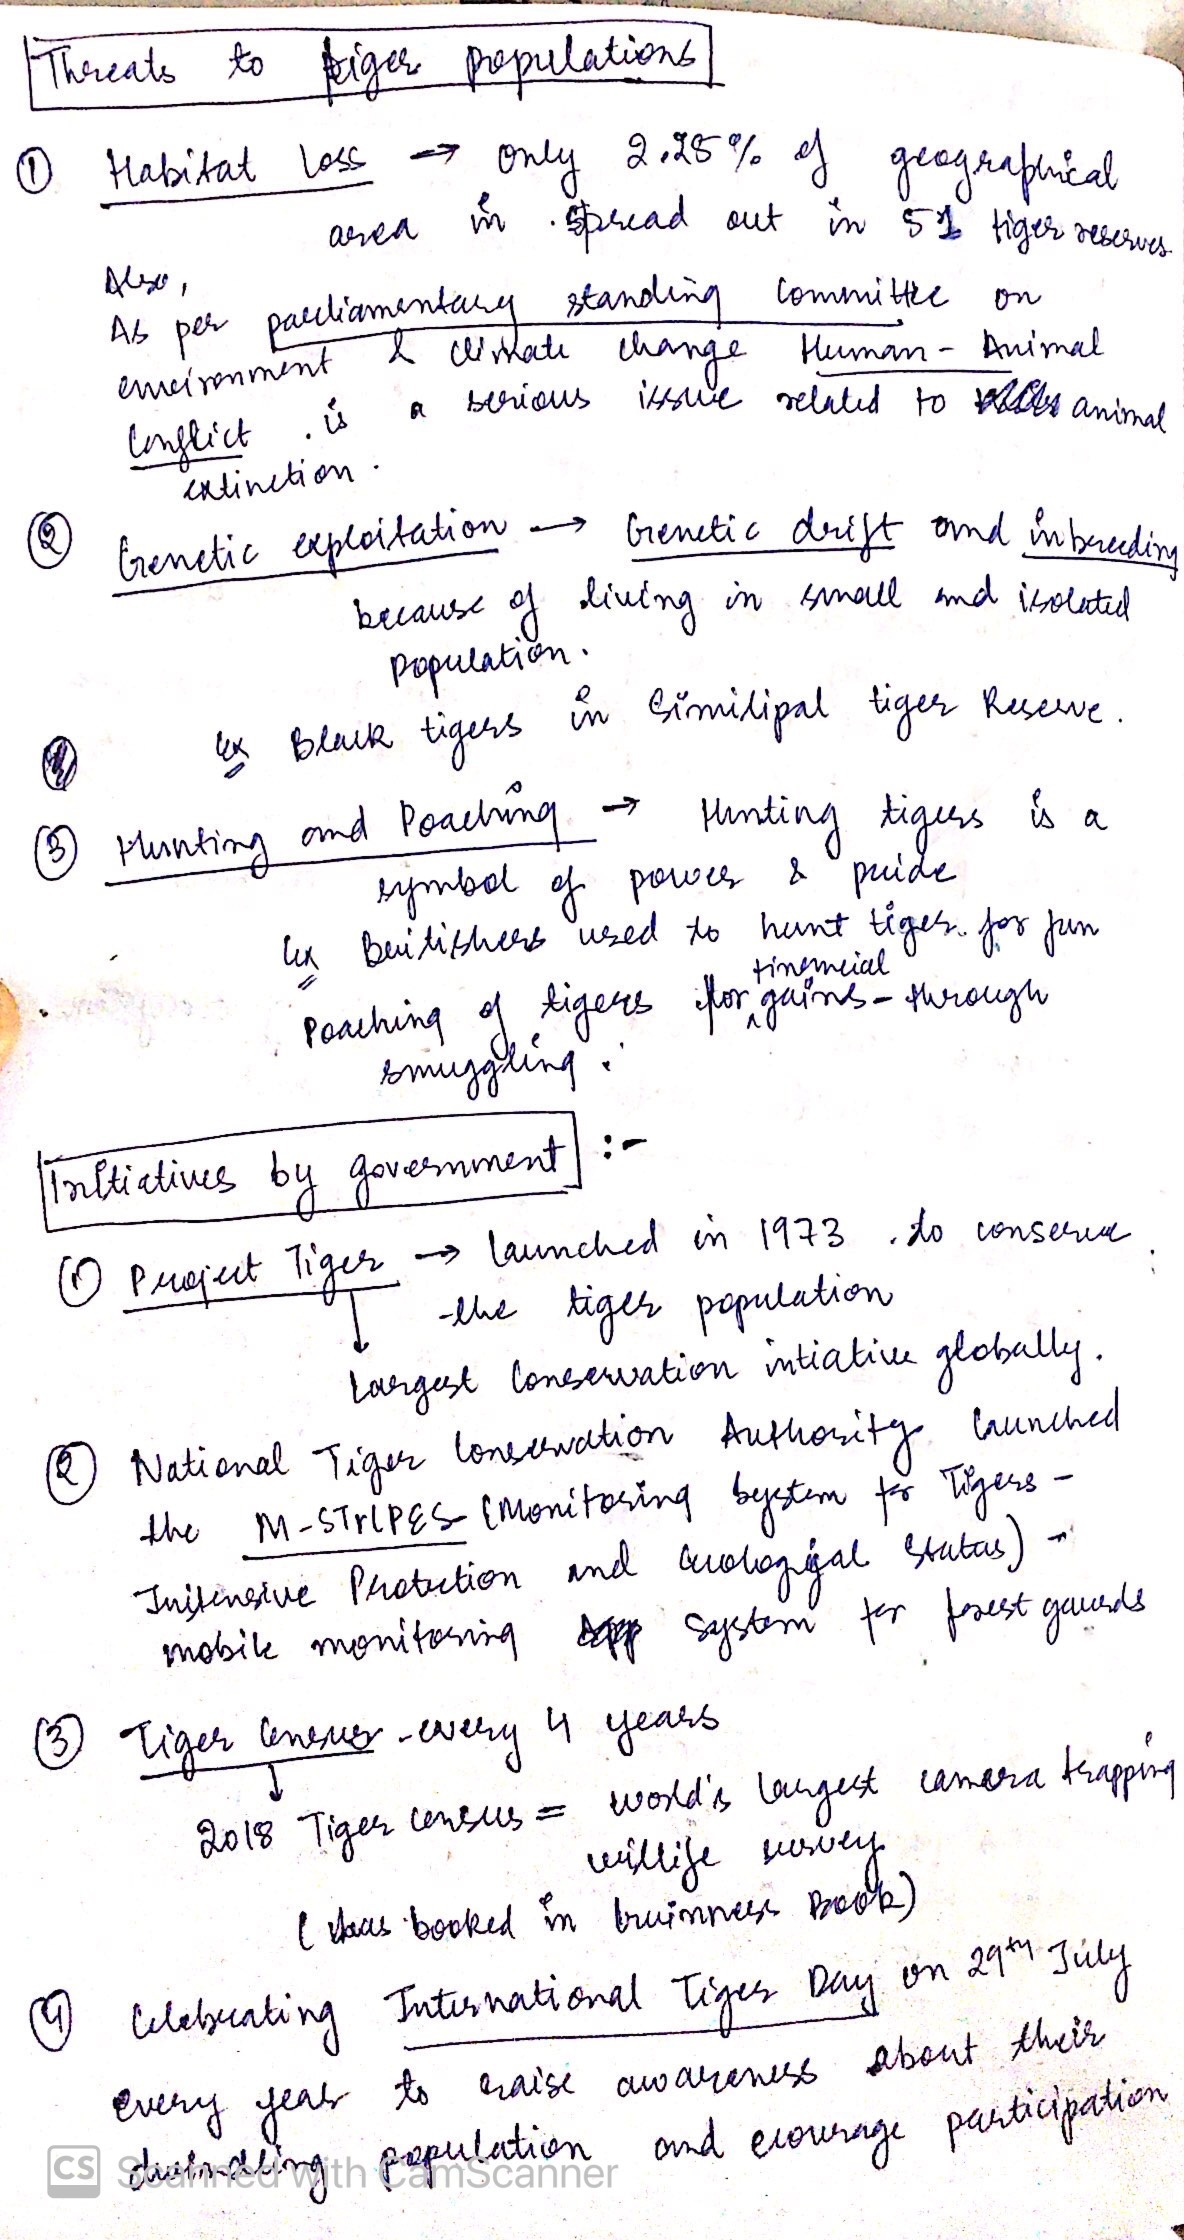 Threats to tiger populations
① Habitat Loss → only 2.25% of geographical
area in spread out in 51 tiger reserves
Also,
As per parliamentary standing committee on
environment & climate change Human - Animal
Conflict is a serious issue related to animal
extinction.
② Genetic exploitation → Genetic drift and inbreeding
because of living in small and isolated
population.
Ex Black tigers in Similipal tiger Reserve.
③ Hunting and Poaching → Hunting tigers is a
symbol of power & pride
Ex Britishers used to hunt tiger for fun
Poaching of tigers for financial gains - through
smuggling.
Initiatives by government :-
① Project Tiger → launched in 1973 to conserve
the tiger population
↓ Largest Conservation intiative globally.
② National Tiger Conservation Authority launched
the M-STrIPES (Monitoring System for Tigers -
Intensive Protection and Ecological Status) -
mobile monitoring system for forest gaurds
③ Tiger Census - every 4 years
↓
2018 Tiger census = world's largest camera trapping
willife survey
(was booked in Guinness Book)
④ Celebrating International Tiger Day on 29th July
every year to raise awareness about their
dwindling population and ecourage participation
CS Scanned with CamScanner